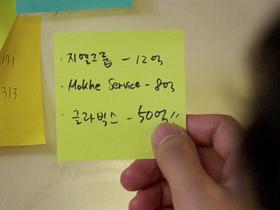 171
313
· 지엘그룹 - 12억
· Mokhe Service - 8억
· 글라빅스 - 50억〃